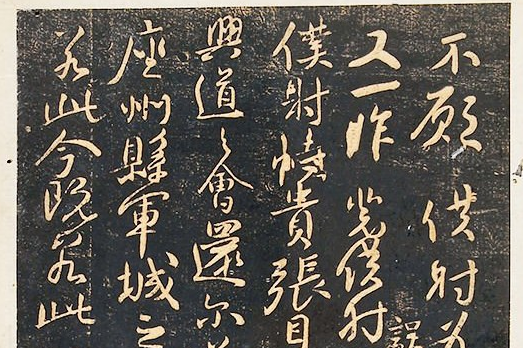 不願僕射為
又一昨裴僕射
誤
僕射恃貴張目
興道之會還尔
座州縣軍城之
若此今既若此